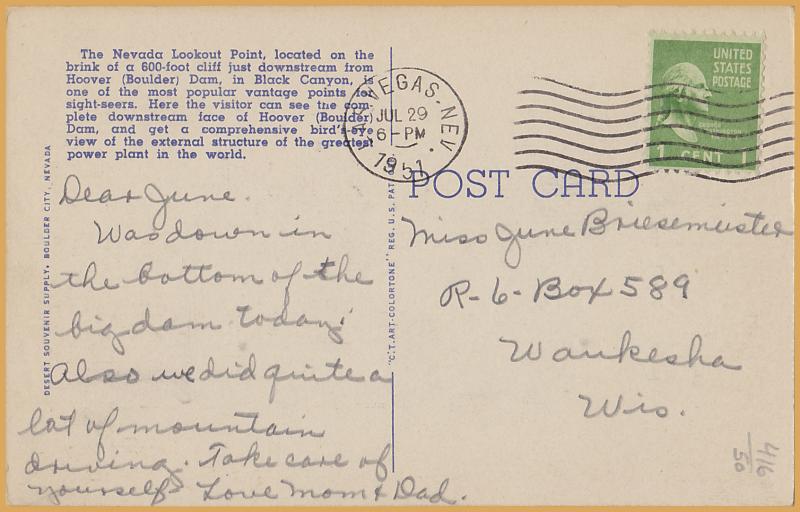 The Nevada Lookout Point, located on the
brink of a 600-foot cliff just downstream from
Hoover (Boulder) Dam, in Black Canyon, is
one of the most popular vantage points for
sight-seers. Here the visitor can see the com-
plete downstream face of Hoover (Boulder)
Dam, and get a comprehensive bird's-eye
view of the external structure of the greatest
power plant in the world.
VEGAS. NEV.
JUL 29
6-PM
1951
UNITED
STATES
POSTAGE
1 CENT 1
DESERT SOUVENIR SUPPLY, BOULDER CITY, NEVADA
"C.T. ART-COLORTONE" REG. U.S. PAT
POST CARD
Dear June.
Was down in
the bottom of the
big dam today.
Also we did quite a
lot of mountain
driving. Take care of
yourself Love Mom & Dad.
Miss June Briesemeister
R-6-Box 589
Waukesha
Wis.
416
50